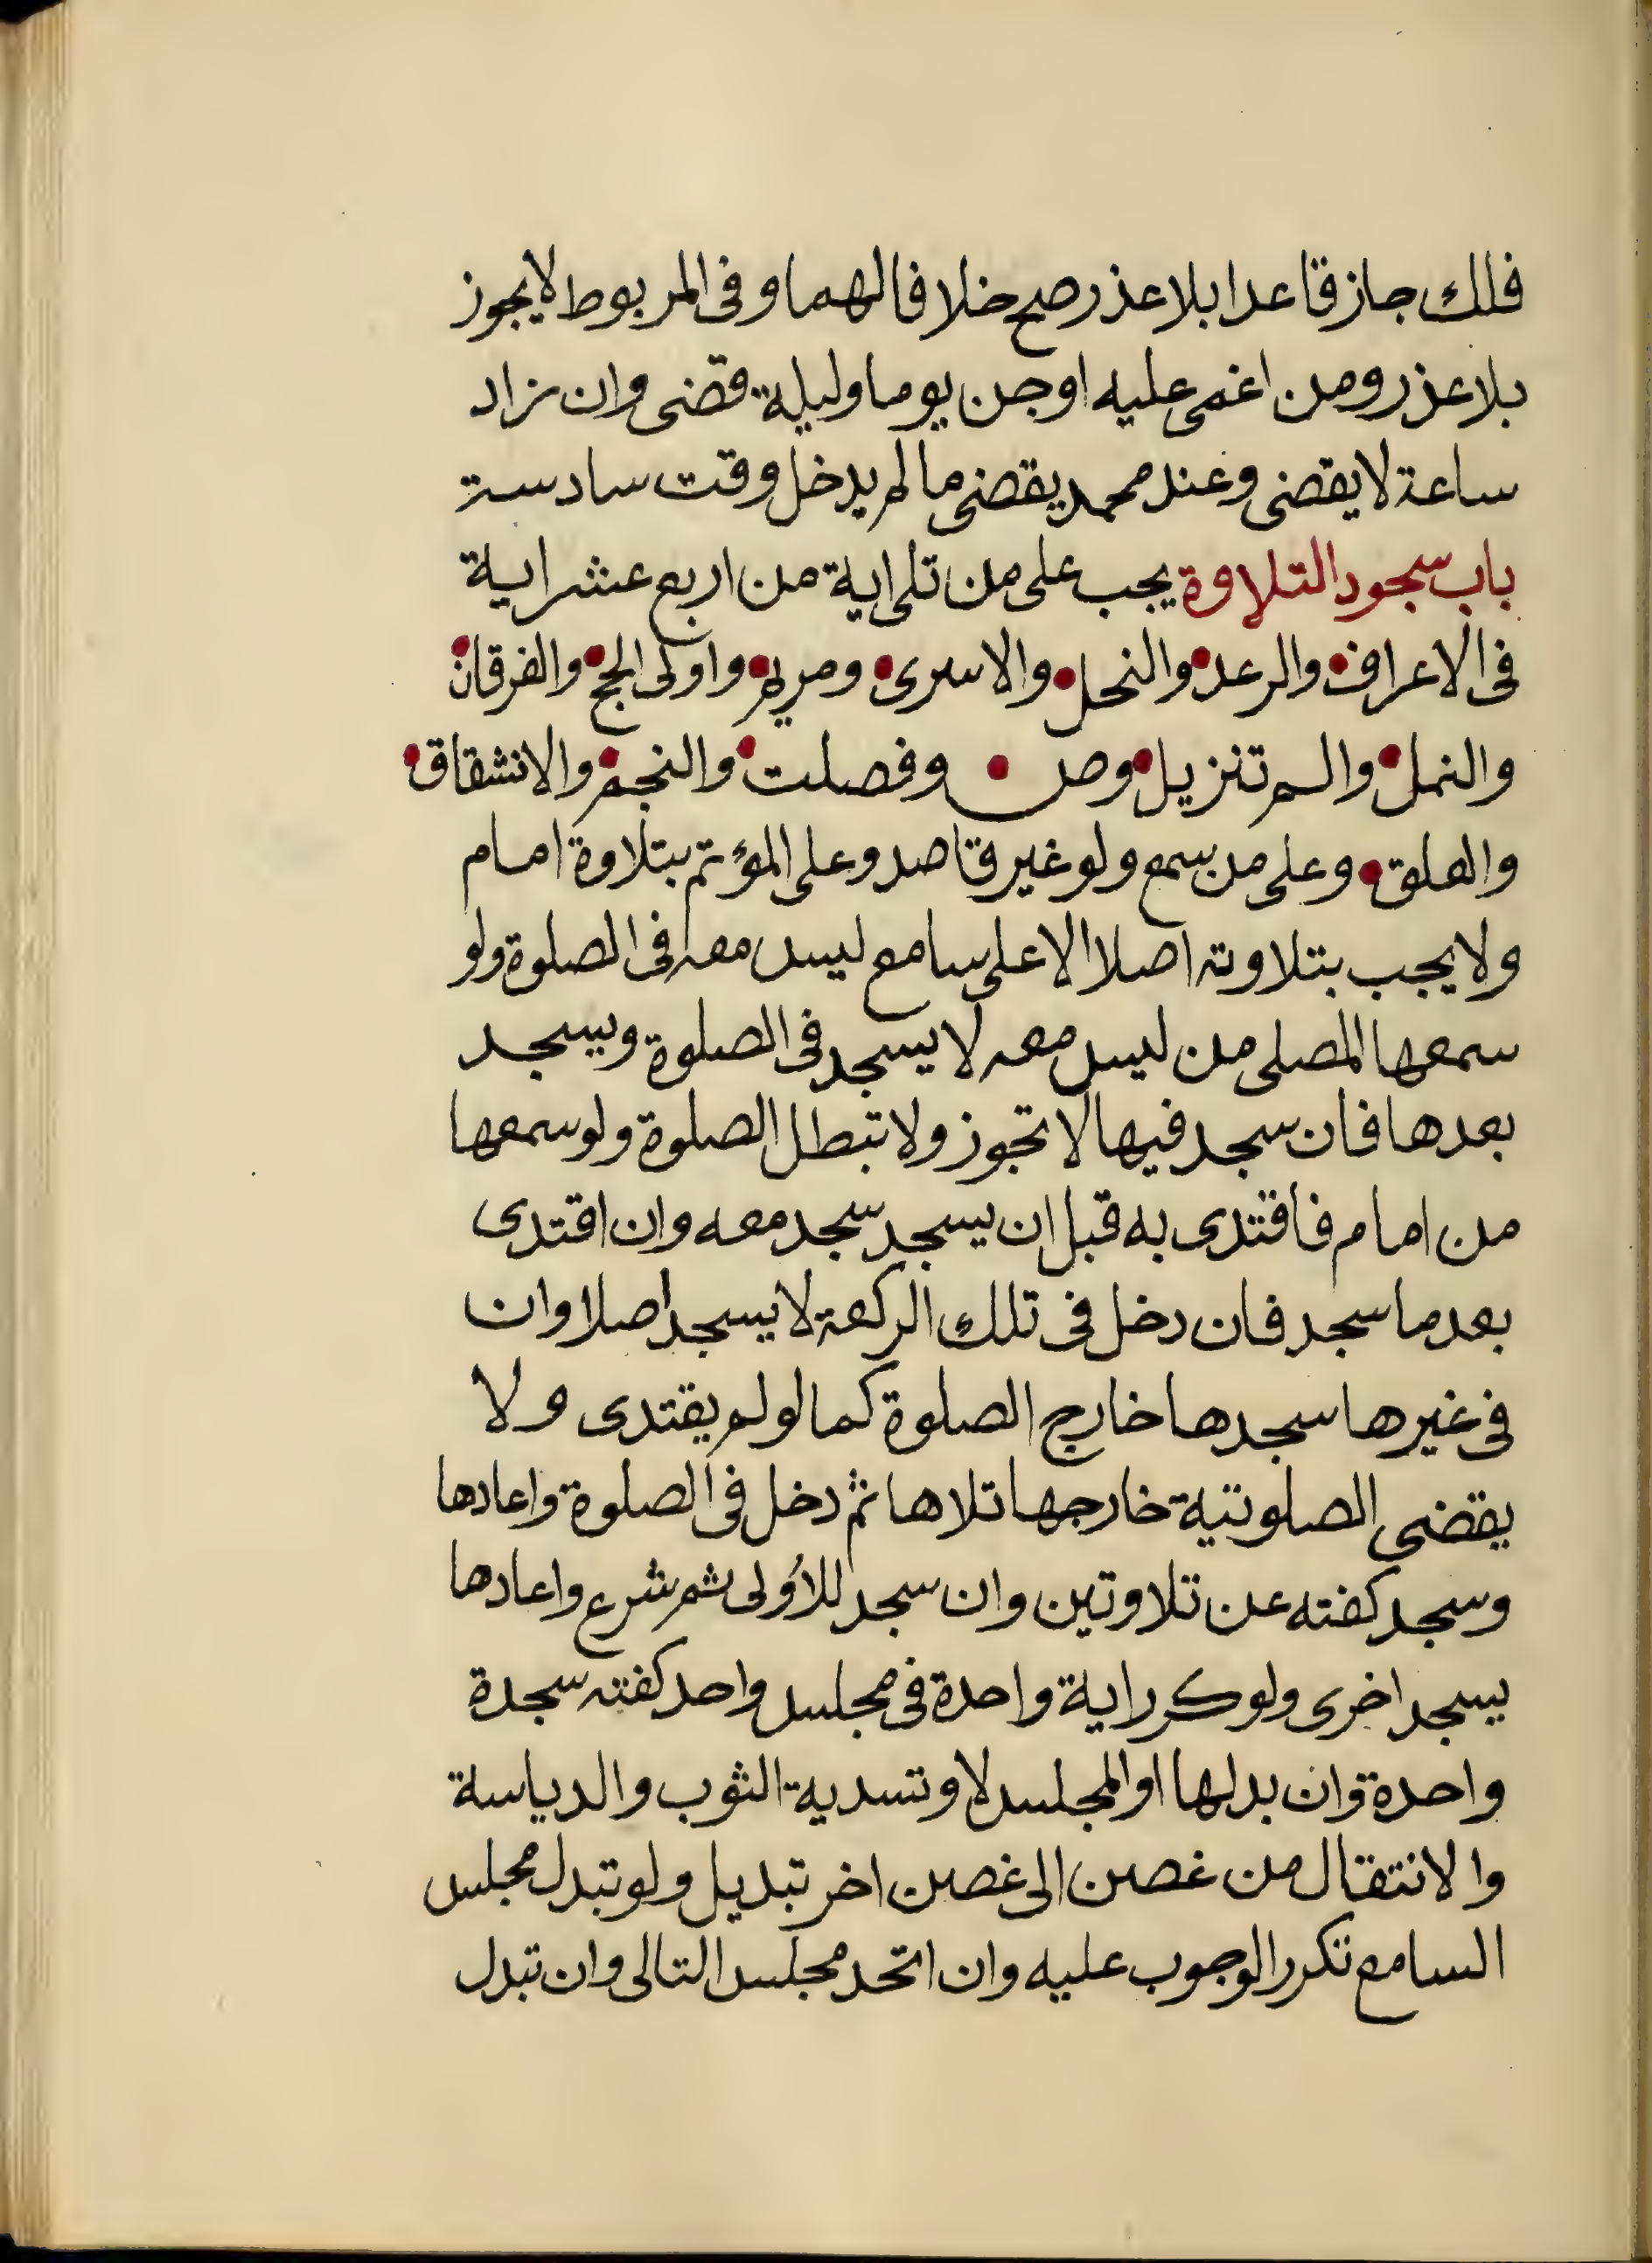 فلك جاز قاعدا بلا عذر صح خلافا لهما وفى المربوط لا يجوز
بلا عذر ومن اغمى عليه او جن يوما وليلة قضى وان زاد
ساعة لا يقضى وعند محمد يقضى ما لم يدخل وقت سادسة
باب سجود التلاوة يجب على من تلى اية من اربع عشر اية
فى الاعراف والرعد والنحل والاسرى ومريم واولى الحج والفرقان
والنمل والم تنزيل وص وفصلت والنجم والانشقاق
والعلق وعلى من سمع ولو غير قاصد وعلى المؤتم بتلاوة امام
ولا يجب بتلاوته اصلا الا على سامع ليس معه فى الصلوة ولو
سمعها المصلى من ليس معه لا يسجد فى الصلوة ويسجد
بعدها فان سجد فيها لا تجوز ولا تبطل الصلوة ولو سمعها
من امام فاقتدى به قبل ان يسجد سجد معه وان اقتدى
بعد ما سجد فان دخل فى تلك الركعة لا يسجد اصلا وان
فى غيرها سجدها خارج الصلوة كما لو لم يقتدى ولا
يقضى الصلوتية خارجها تلاها ثم دخل فى الصلوة واعادها
وسجد كفته عن تلاوتين وان سجد للأولى ثم شرع واعادها
يسجد اخرى ولو كرر اية واحدة فى مجلس واحد كفته سجدة
واحدة وان بدلها او المجلس لا وتسدية الثوب والدياسة
والانتقال من غصن الى غصن اخر تبديل ولو تبدل مجلس
السامع تكرر الوجوب عليه وان اتحد مجلس التالى وان تبدل